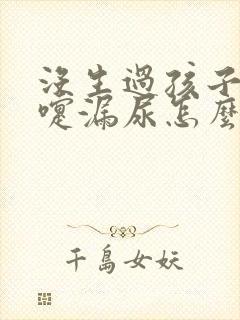 沒生過孩子
嚏漏尿怎麼
千島女妖